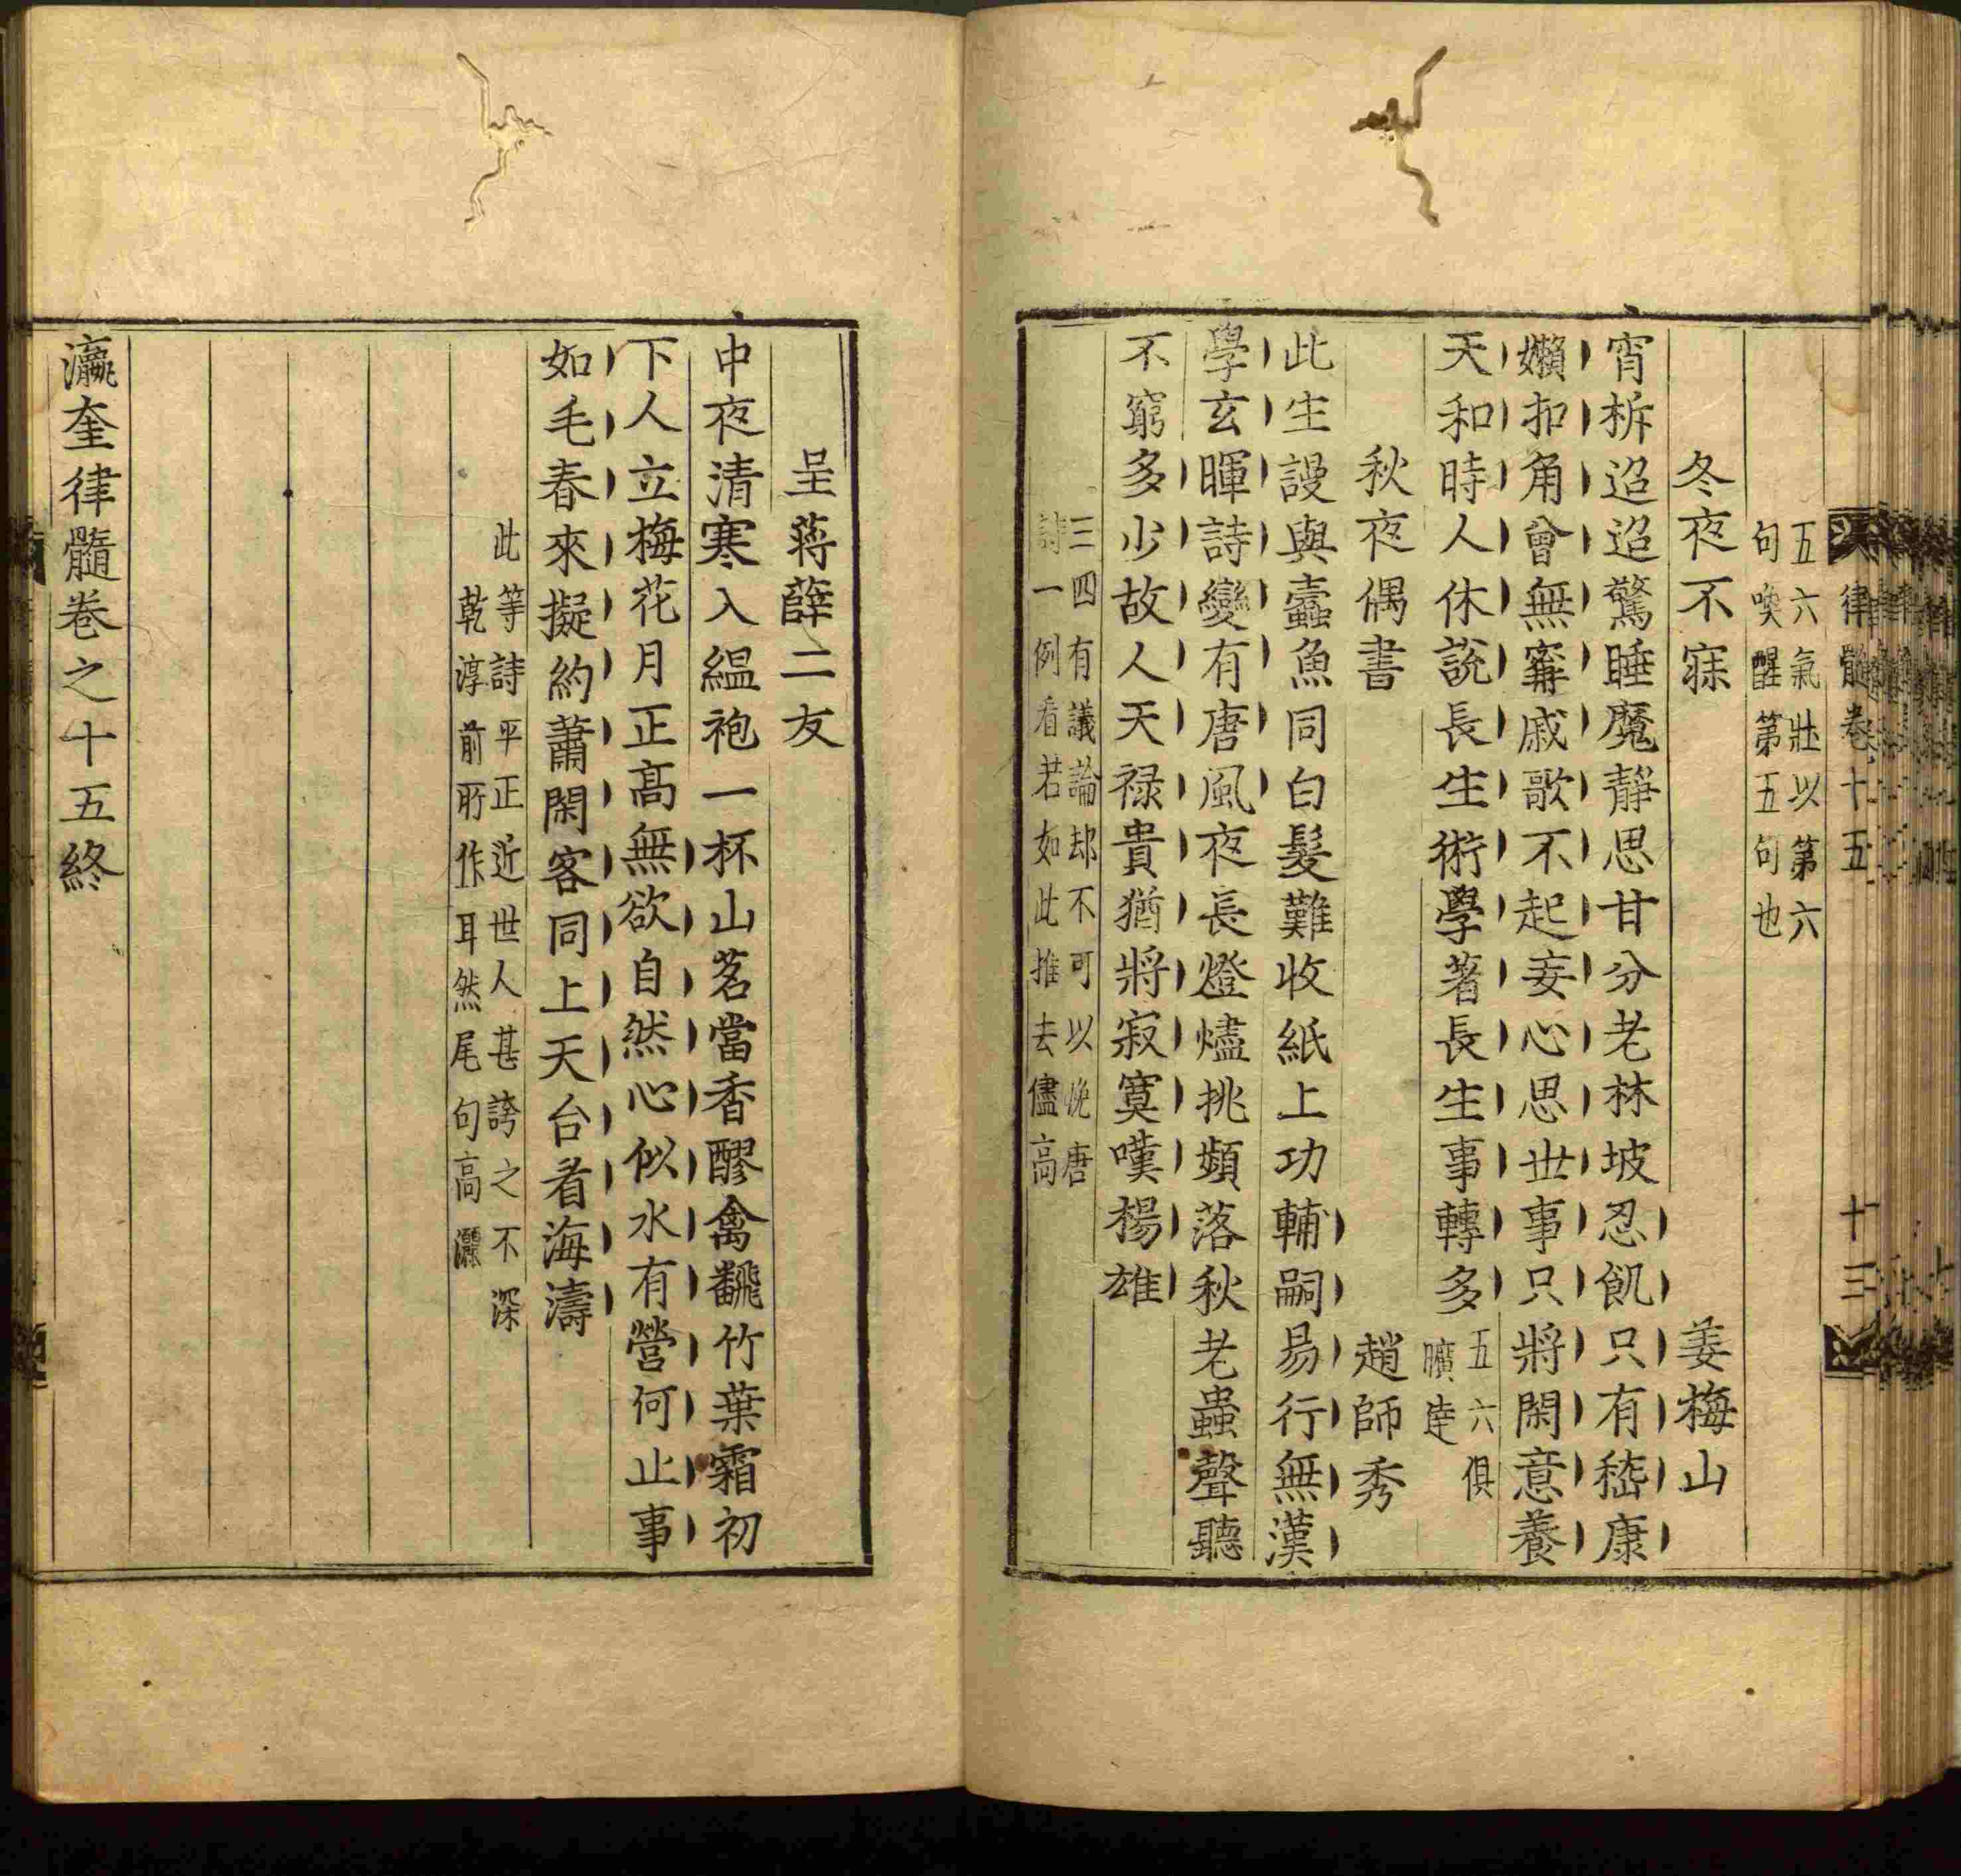 律髓卷十五 十三
五六氣壯以第六
句喚醒第五句也
冬夜不寐 姜梅山
宵柝迢迢驚睡魔靜思甘分老林坡忍飢只有嵇康
嬾扣角曾無寗戚歌不起妄心思世事只將閑意養
天和時人休説長生術學著長生事轉多
五六俱
曠達
秋夜偶書 趙師秀
此生謾與蠹魚同白髮難收紙上功輔嗣易行無漢
學玄暉詩變有唐風夜長燈燼挑頻落秋老蟲聲聽
不窮多少故人天禄貴猶將寂寞嘆楊雄
三四有議論却不可以晚唐
詩一例看若如此推去儘高
呈蔣薛二友
中夜清寒入緼袍一杯山茗當香醪禽飜竹葉霜初
下人立梅花月正髙無欲自然心似水有營何止事
如毛春來擬約蕭閑客同上天台看海濤
此等詩平正近世人甚誇之不深
乾淳前所作耳然尾句高灑
瀛奎律髓卷之十五終